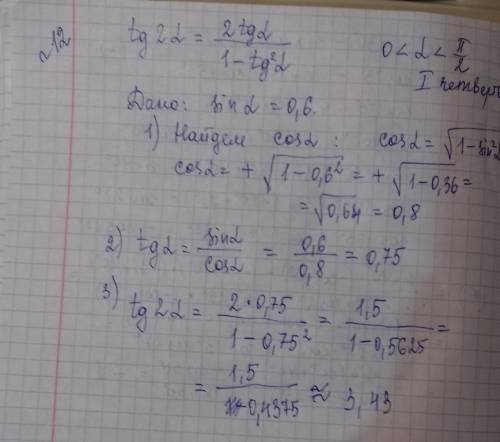 №12 tg 2α = 2tgα / 1 - tg²α 0 < α < π/2
I четверть
Дано: sinα = 0,6.
1) Найдем cosα : cosα = √1-sin²α
cosα = + √1-0,6² = + √1-0,36 =
= √0,64 = 0,8
2) tgα = sinα / cosα = 0,6 / 0,8 = 0,75
3) tg 2α = 2·0,75 / 1-0,75² = 1,5 / 1-0,5625 =
= 1,5 / 0,4375 ≈ 3,43